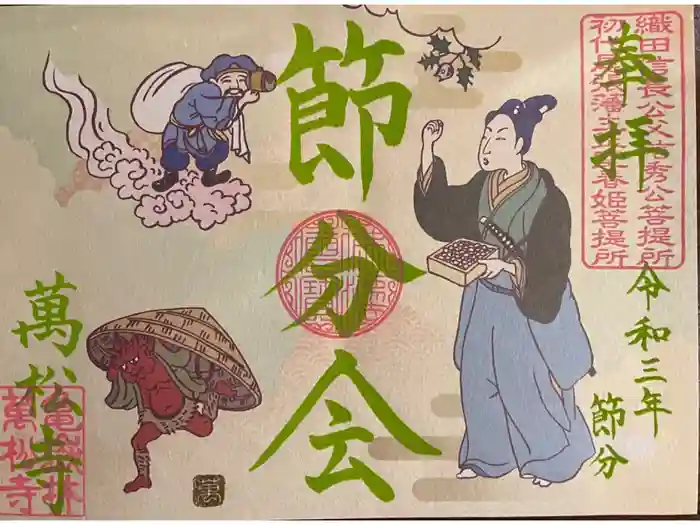 織田信長公父信秀公菩提所
初代尾張藩主夫人春姫菩提所
奉拝
令和三年
節分
節分会
萬松寺
亀嶽林
萬松寺
萬